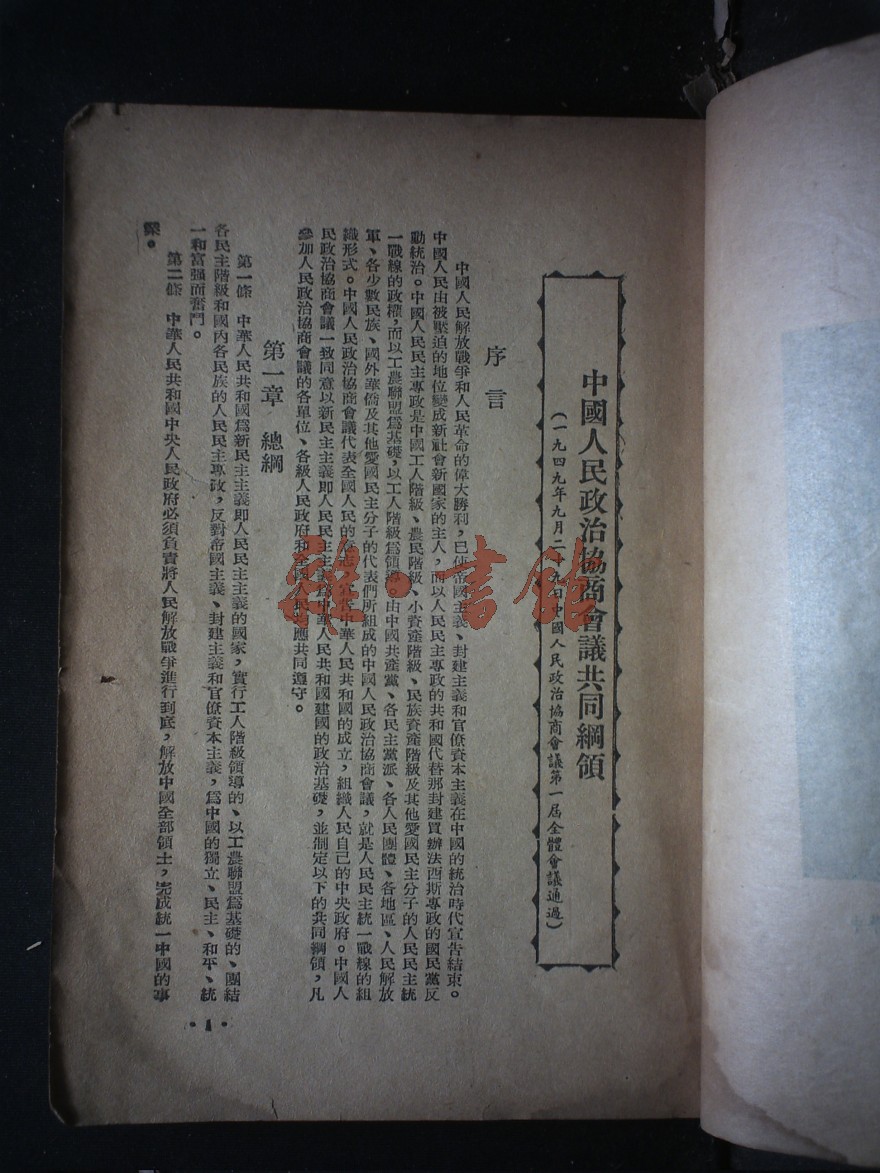 中國人民政治協商會議共同綱領
(一九四九年九月二十九日中國人民政治協商會議第一屆全體會議通過)
序言
中國人民解放戰爭和人民革命的偉大勝利，已使帝國主義、封建主義和官僚資本主義在中國的統治時代宣告結束。
中國人民由被壓迫的地位變成新社會新國家的主人，而以人民民主專政的共和國代替那封建買辦法西斯專政的國民黨反
動統治。中國人民民主專政是中國工人階級、農民階級、小資產階級、民族資產階級及其他愛國民主分子的人民民主統
一戰線的政權，而以工農聯盟爲基礎，以工人階級爲領導。由中國共產黨、各民主黨派、各人民團體、各地區、人民解放
軍、各少數民族、國外華僑及其他愛國民主分子的代表們所組成的中國人民政治協商會議，就是人民民主統一戰線的組
織形式。中國人民政治協商會議代表全國人民的意志，宣告中華人民共和國的成立，組織人民自己的中央政府。中國人
民政治協商會議一致同意以新民主主義即人民民主主義爲中華人民共和國建國的政治基礎，並制定以下的共同綱領，凡
參加人民政治協商會議的各單位、各級人民政府和全國人民均應共同遵守。
第一章 總綱
第一條 中華人民共和國爲新民主主義即人民民主主義的國家，實行工人階級領導的、以工農聯盟爲基礎的、團結
各民主階級和國內各民族的人民民主專政，反對帝國主義、封建主義和官僚資本主義，爲中國的獨立、民主、和平、統
一和富强而奮鬥。
第二條 中華人民共和國中央人民政府必須負責將人民解放戰爭進行到底，解放中國全部領土，完成統一中國的事
業。
·1·
雜·書館